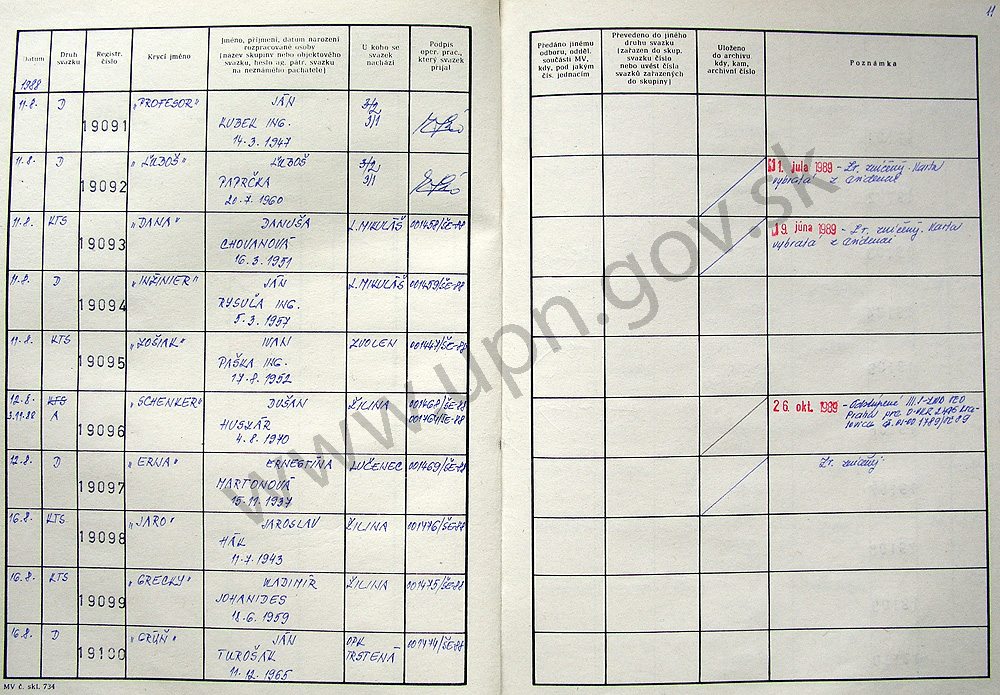 11
Datum
Druh svazku
Registr. číslo
Krycí jméno
Jméno, příjmení, datum narození
rozpracované osoby
(název skupiny nebo objektového
svazku, heslo ag. pátr. svazku
na neznámého pachatele)
U koho se
svazek
nachází
Podpis
oper. prac.,
který svazek
přijal
Předáno jinému
odboru, odděl.
součásti MV,
kdy, pod jakým
čís. jednacím
Převedeno do jiného
druhu svazku
(zařazen do skup.
svazku číslo
nebo uvést čísla
svazků zařazených
do skupiny)
Uloženo
do archivu
kdy, kam,
archivní číslo
Poznámka
1988
11.8. D 19091 "PROFESOR" JÁN 3/2
KUBEK ING. 3/1
14.3.1947
11.8. D 19092 "ĽUBOŠ" ĽUBOŠ 3/2
PAPRČKA 3/1
20.7.1960
1. júla 1989 - Zv. zničený. Karta
vybratá z evidencií
11.8. KTS 19093 "DANA" DANUŠA L.MIKULÁŠ 001458/ŠE-88
CHOVANOVÁ
16.3.1951
9. júna 1989 - Zv. zničený. Karta
vybratá z evidencií
11.8. D 19094 "INŽINIER" JÁN L.MIKULÁŠ 001459/ŠE-88
RYSUĽA ING.
5.3.1957
11.8. KTS 19095 IVAN ZVOLEN 001447/ŠE-88
PAŠKA ING.
17.8.1952
12.8. KTS 19096 "SCHENKER" DUŠAN ŽILINA 001468/ŠE-88
3.11.88 A HUSLÁR
4.8.1970
26. okt. 1989 - Odstúpené
12.8. D 19097 "ERNA" ERNESTÍNA LUČENEC 001469/ŠE-88
MARTONOVÁ
15.11.1937
Zv. zničený
16.8. KTS 19098 "JARO" JAROSLAV ŽILINA 001476/ŠE-88
HÁK
11.7.1943
16.8. KTS 19099 "GRECKY" VLADIMÍR ŽILINA 001475/ŠE-88
JOHANIDES
18.6.1959
16.8. D 19100 "GRÚŇ" JÁN OPK 001474/ŠE-88
TUROŠÁK TRSTENÁ
11.12.1965
MV č. skl. 734
www.upn.gov.sk